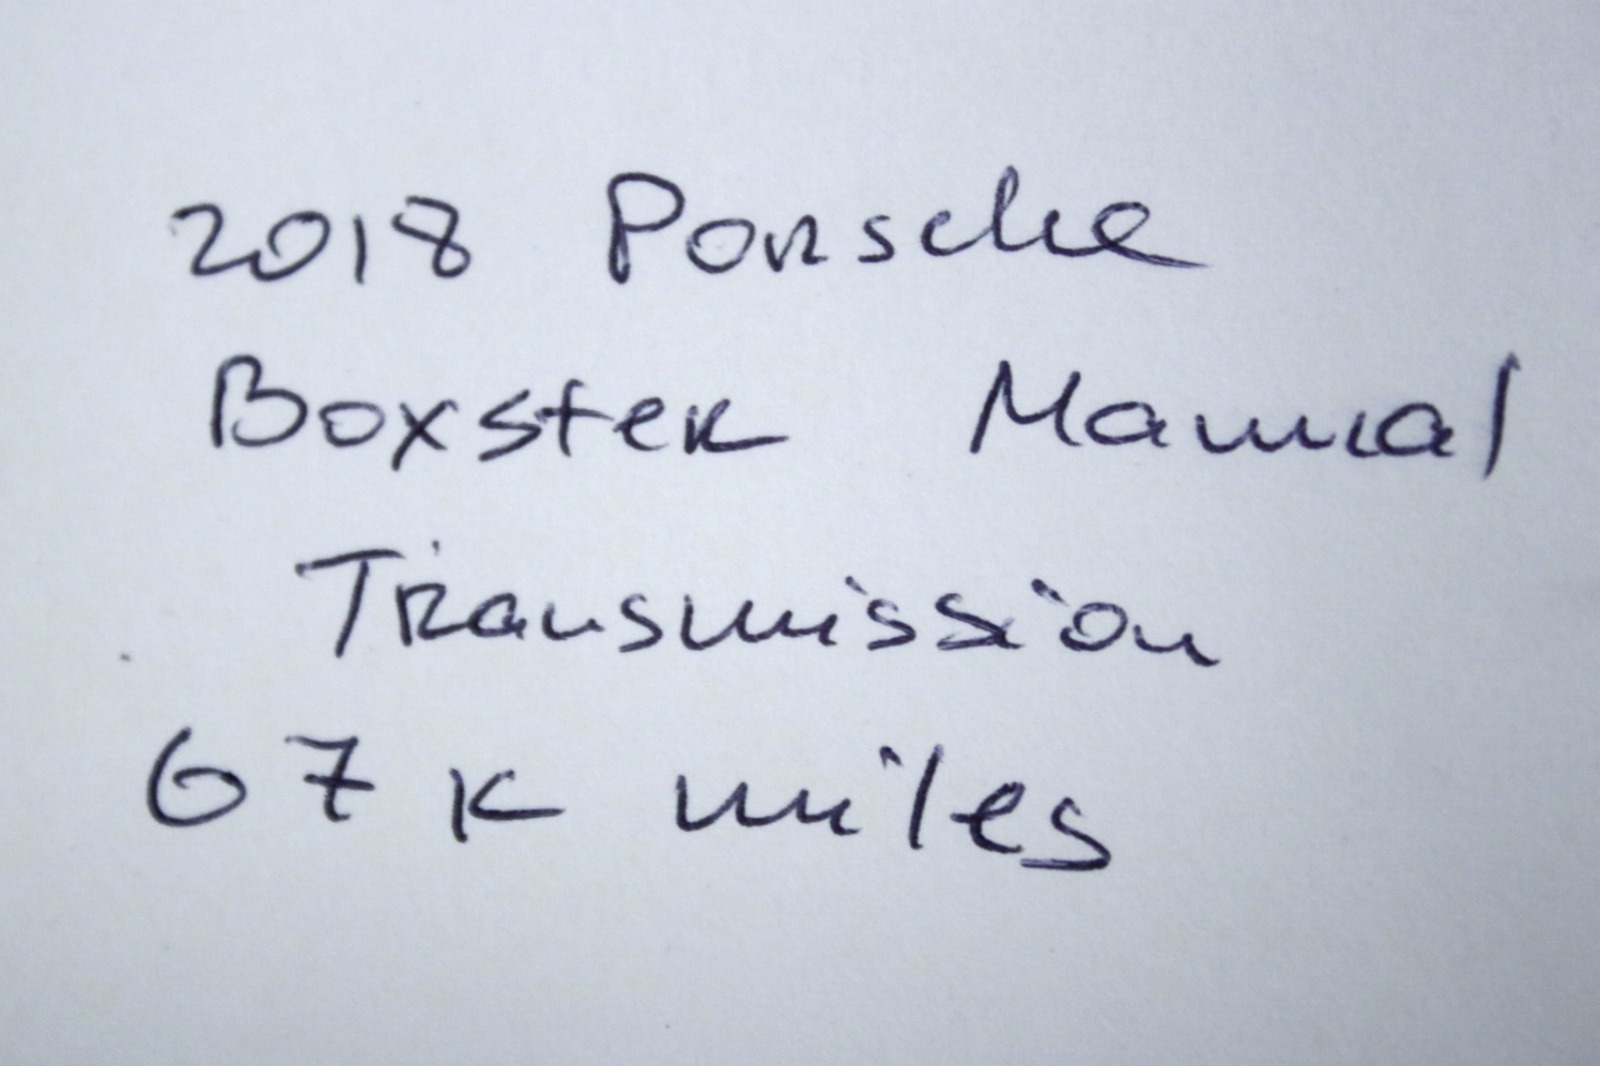 2018 Porsche
Boxster Manual
Transmission
67K miles